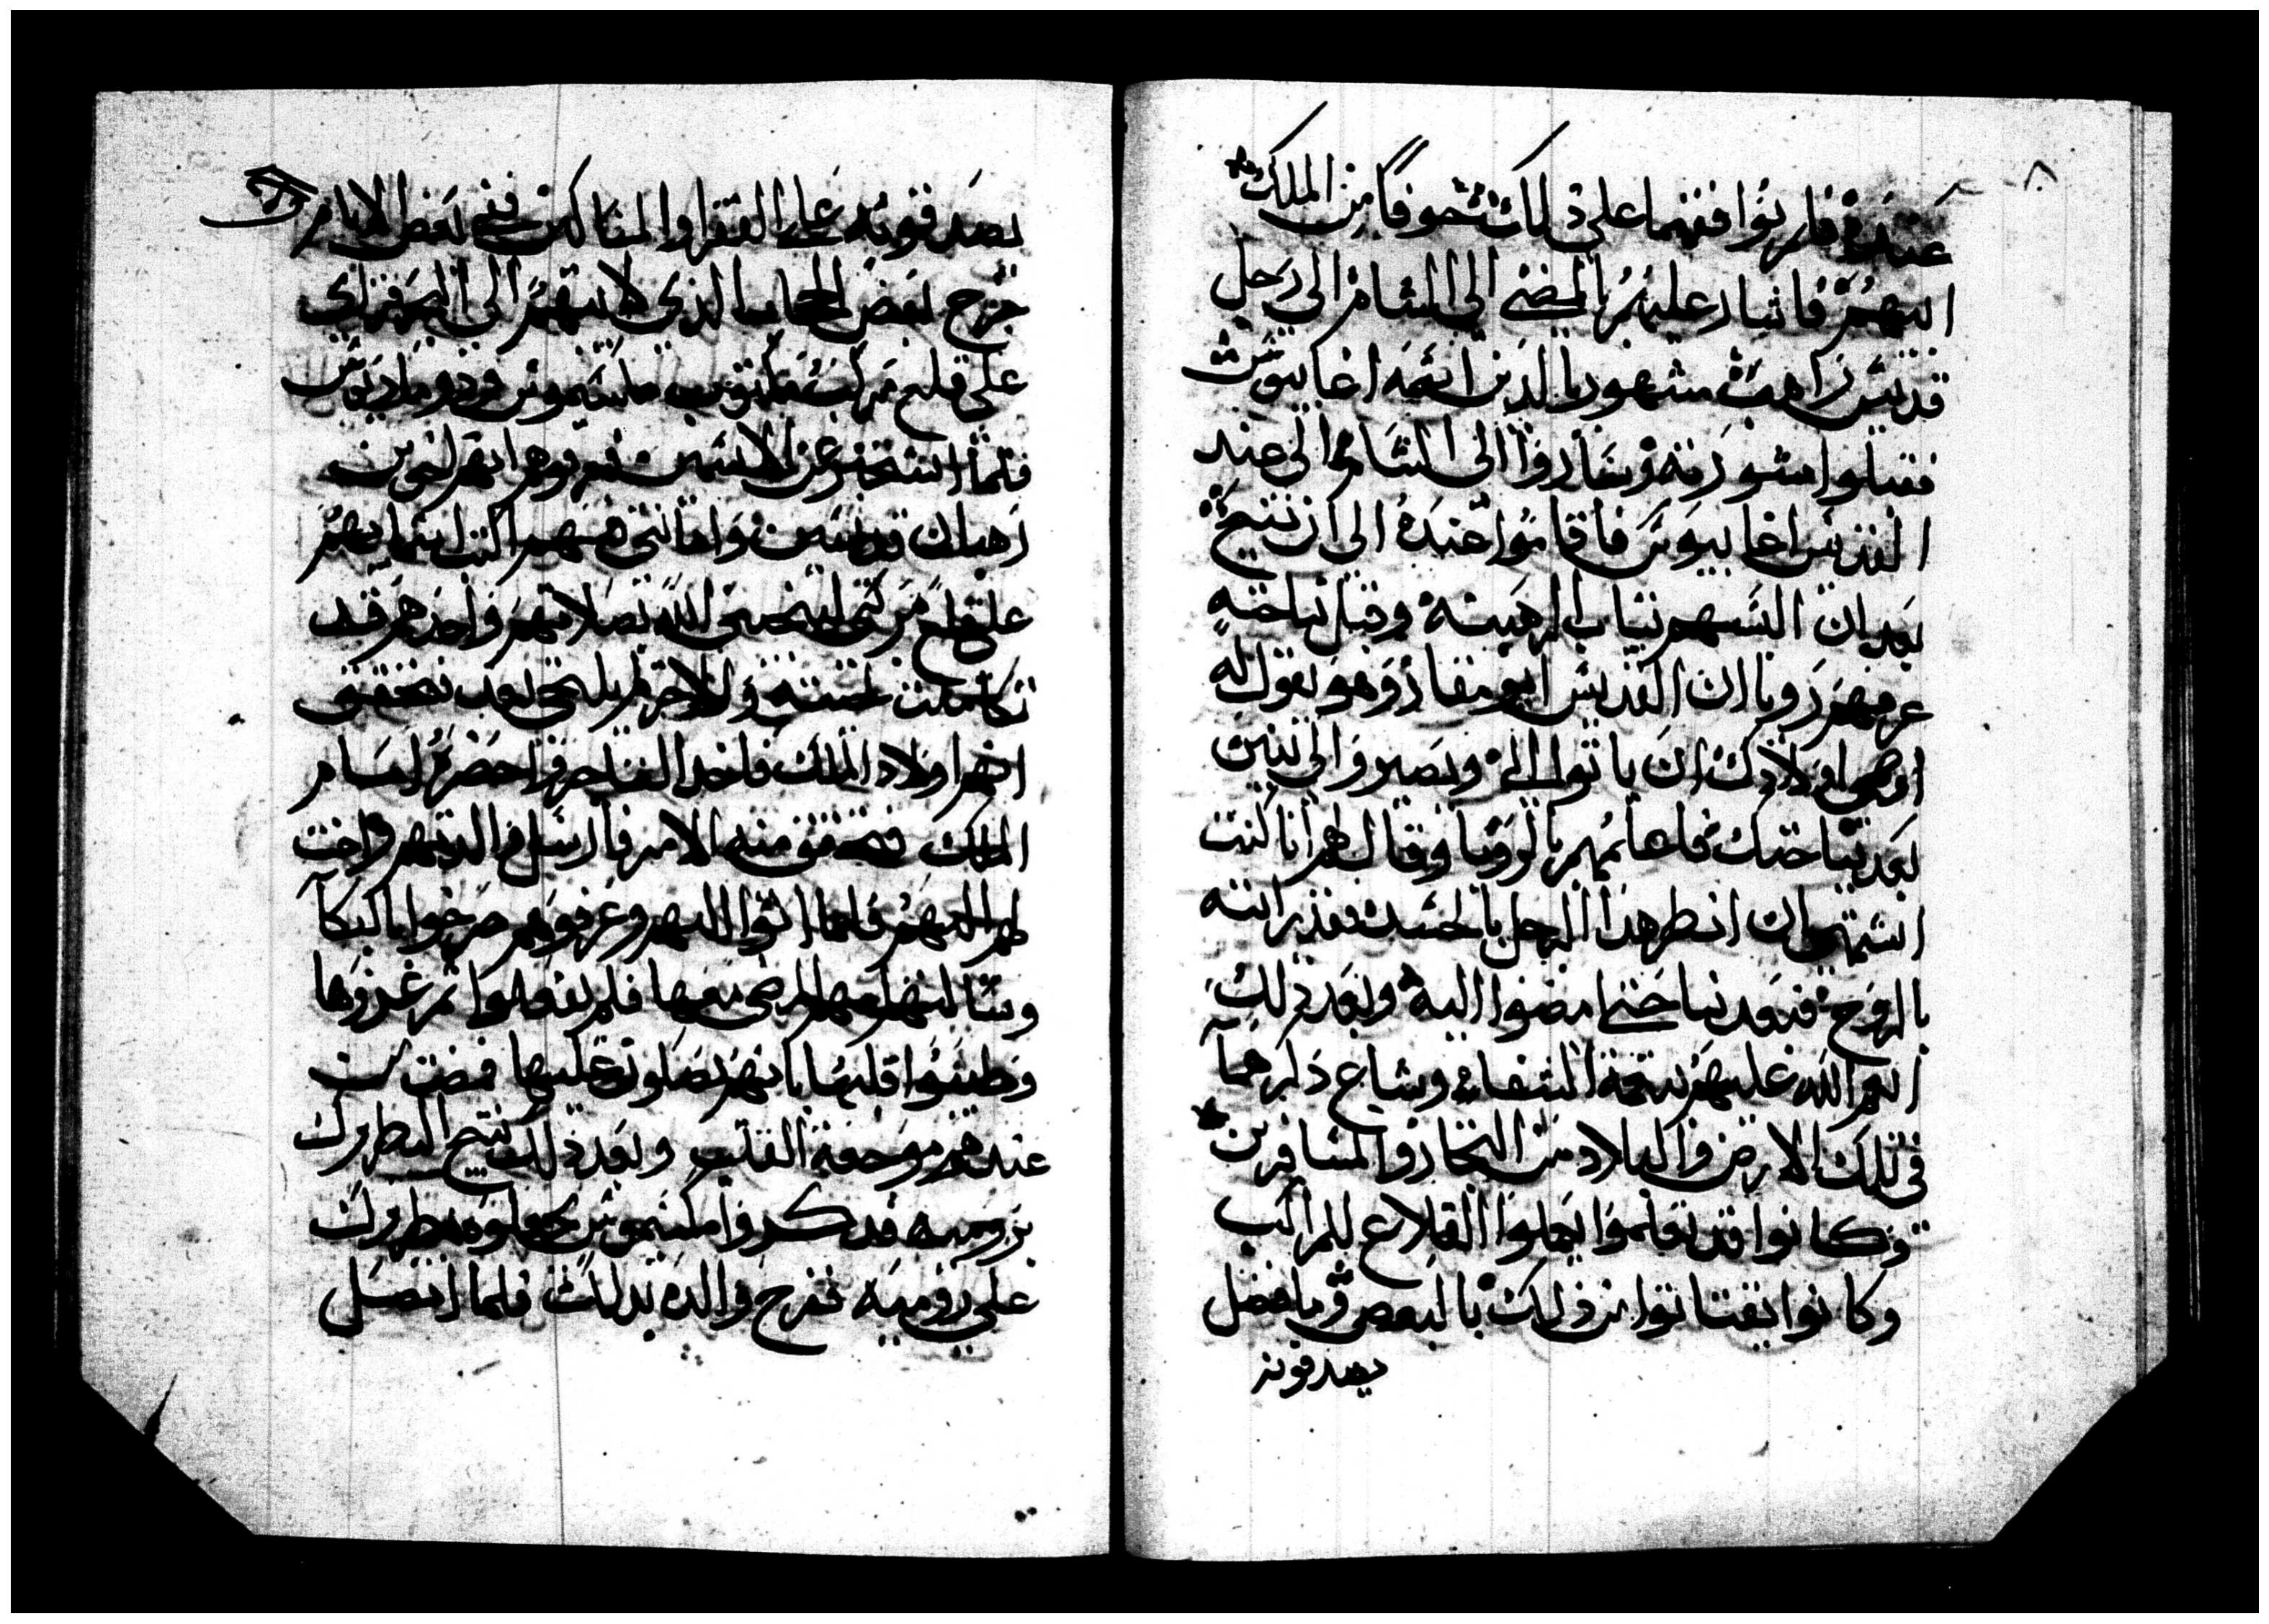 عنده فلم يوافقهما على ذلك خوفا من الملك
ابيهم فاشار عليهم بالمضي الى الشام الى رجل
قديس راهب مشهور بالدين اسمه اغابيوس
فقبلوا مشورته وساروا الى الشام الى عند
القديس اغابيوس فاقاموا عنده الى ان تنيح
بعد ان البسهم ثياب الرهبنة وقبل نياحته
عرفهم رويا ان القديس ابو مقار وهو يقول له
اوصي اولادك ان ياتوا الي ويصيروا لي بنين
بعد نياحتك فاعلمهم بالرويا وقال لهم انا كنت
اشتهي ان انظر هذا الرجل بالجسد فقد رايته
بالروح فبعد نياحتي امضوا اليه وبعد ذلك
انعم الله عليهم بنعمة الشفاء وشاع ذكرهما
في تلك الارض والبلاد من التجار والمسافرين
وكانوا قد تعلموا يعملوا القلاع للمراكب
وكانوا يقتاتوا من ذلك بالبعض وما فضل
يصدقونه
يصدقونه على الفقرا والمساكين ففي بعض الايام
خرج بعض الحجاب الذي لابيهم الى البحر فراى
على قلع مركب مكتوب مكسيموس ودوماديوس
فلما استخبر عن الاسمين عرفوهم انهم لنفرين
رهبان قديسين وانا نحن هم اكتب اسمايهم
على قلع مركبي لينجحني الله بصلاتهم واحدهم قد
تكاملت لحيته والاخر لم يلتحي بعد فتحقق
انهم اولاد الملك فاخذ التاجر واحضره امام
الملك فتحقق منه الامر فارسل والدتهم واخت
لهم اليهم فلما اتوا اليهم وعرفوهم صرخوا بالبكا
وسالتهم امهم المضي معها فلم يفعلوا ثم عزوها
وطيبوا قلبها بانهم يصلون عليها فمضت من
عندهم موجعة القلب وبعد ذلك تنيح البطريرك
برومية فذكروا مكسيموس يجعلوه بطريرك
على رومية ففرح والده بذلك فلما اتصل